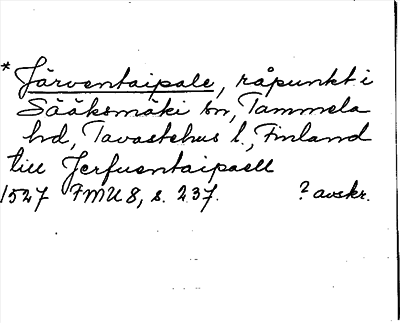 * Järventaipale, råpunkt i
Sääksmäki sn, Tammela
hd, Tavastehus l., Finland
till Jerfuentaipaell
1527 FMU 8, s. 237. ? avskr.